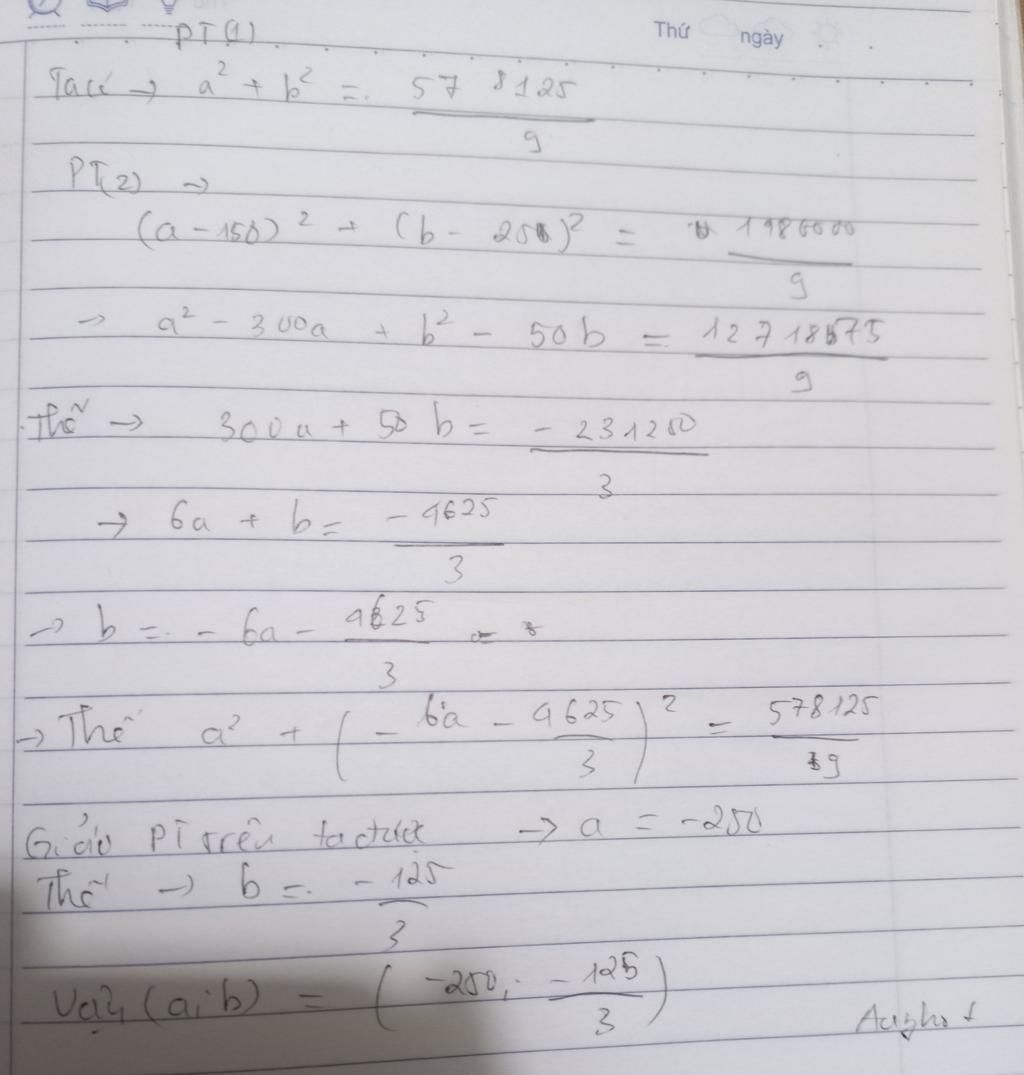 Thứ ngày
PT(1)
Ta có → a² + b² = 578125/9
PT(2) →
(a - 150)² + (b - 25)² =
→ a² - 300a + b² - 50b = 12718575/9
Thế → 300a + 50b = - 231250/3
→ 6a + b = - 4625/3
→ b = - 6a - 4625/3
→ Thế a² + (- 6a - 4625/3)² = 578125/9
Giải PT trên ta được → a = -250
Thế → b = - 125/3
Vậy (a; b) = (-250; - 125/3)